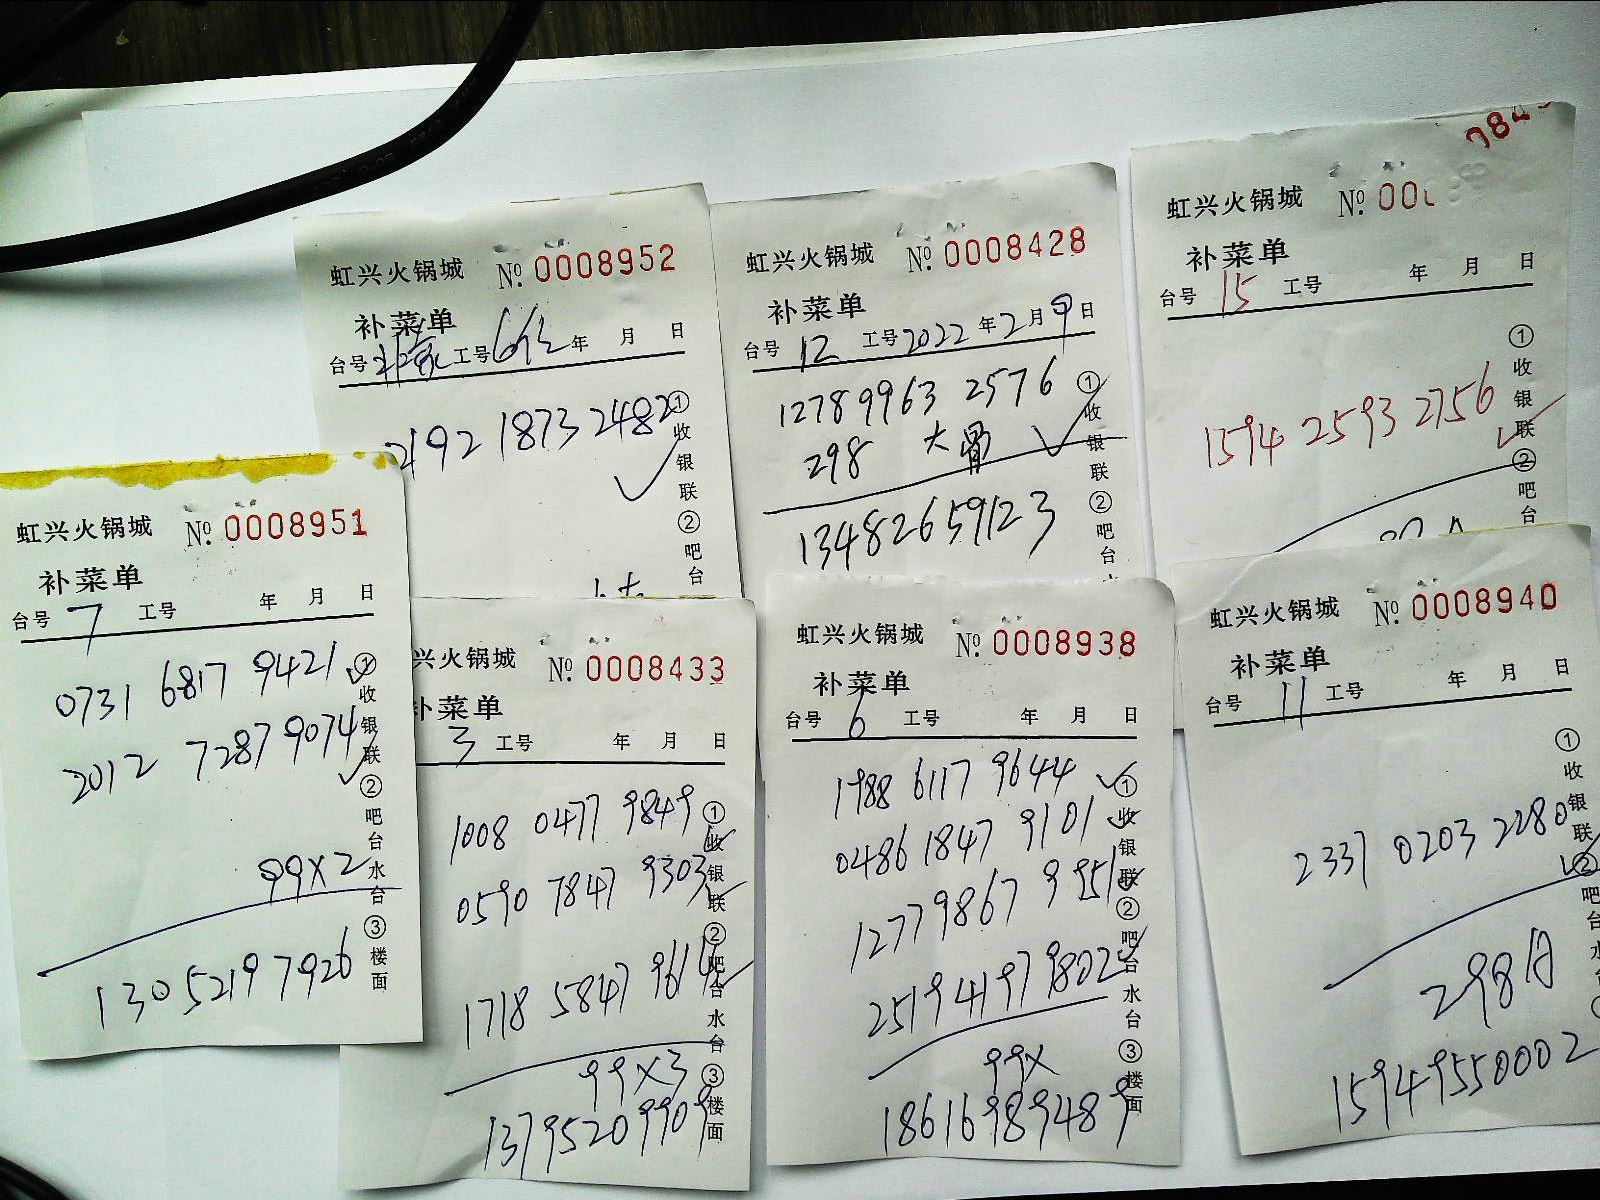 虹兴火锅城 № 0008952
补菜单
台号 工号 年 月 日
2192 1873 2482
①收银联②吧台
虹兴火锅城 № 0008428
补菜单
台号 12 工号 2022年2月9日
1278 9963 2576
298 大骨
13482659123
①收银联②吧台
虹兴火锅城 № 00
补菜单
台号 15 工号 年 月 日
1594 2593 2756
①收银联②吧台
虹兴火锅城 № 0008951
补菜单
台号 7 工号 年 月 日
0731 6817 9421
2012 7287 9074
99×2
13052197926
①收银联②吧台水台③楼面
兴火锅城 № 0008433
补菜单
3 工号 年 月 日
1008 0477 9849
0590 7847 9303
1718 5847 9614
99×3
13795209909
①收银联②吧台水台③楼面
虹兴火锅城 № 0008938
补菜单
台号 6 工号 年 月 日
1988 6117 9644
0486 1847 9101
1277 9867 9951
2519 4197 9802
99×
18616989489
①收银联②吧台水台③楼面
虹兴火锅城 № 0008940
补菜单
台号 11 工号 年 月 日
2337 0203 2280
298
15949550002
①收银联②吧台水